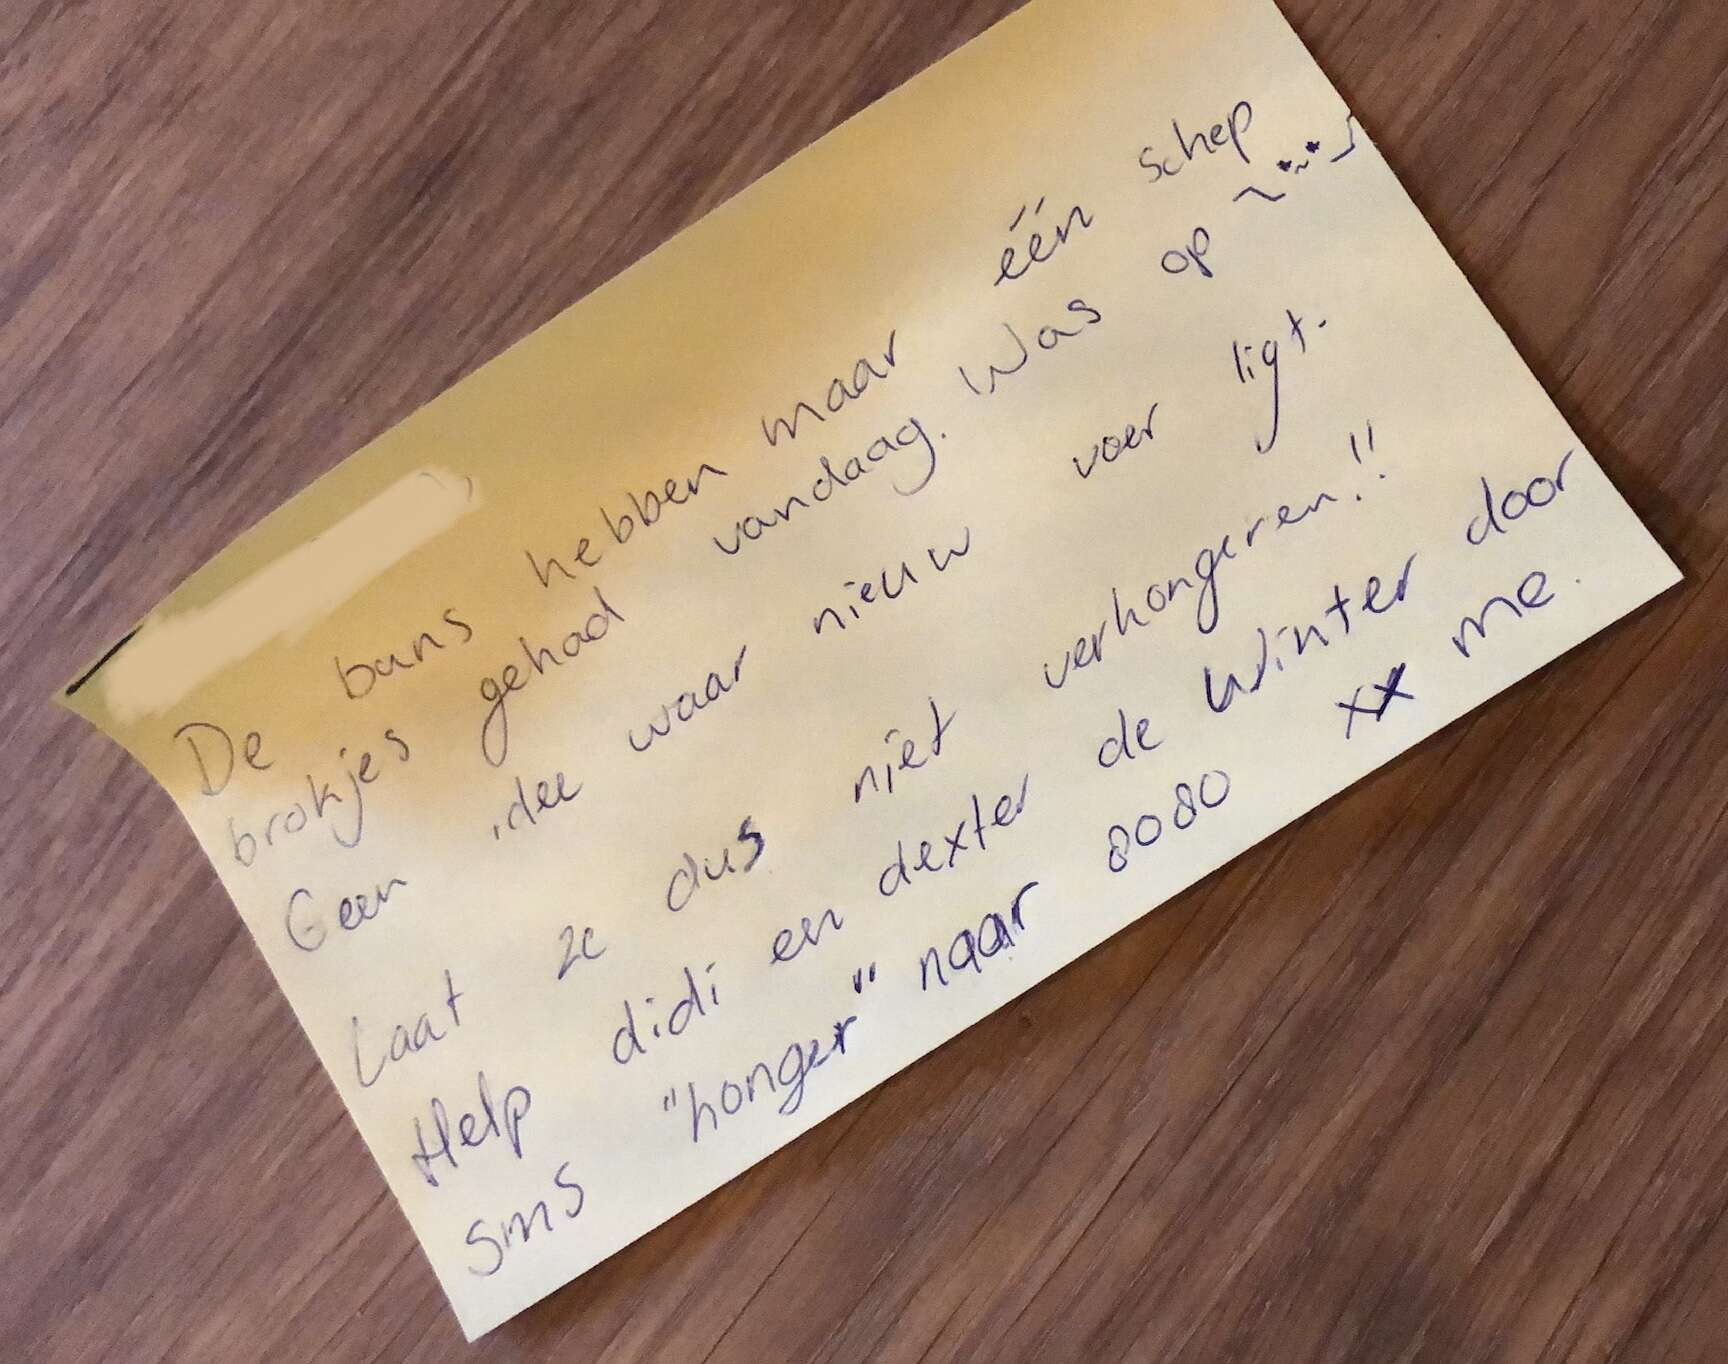 De buns hebben maar één schep
brokjes gehad vandaag. Was op
Geen idee waar nieuw voer ligt.
Laat ze dus niet verhongeren!!
Help didi en dexter de Winter door
sms "honger" naar 8080 xx me.